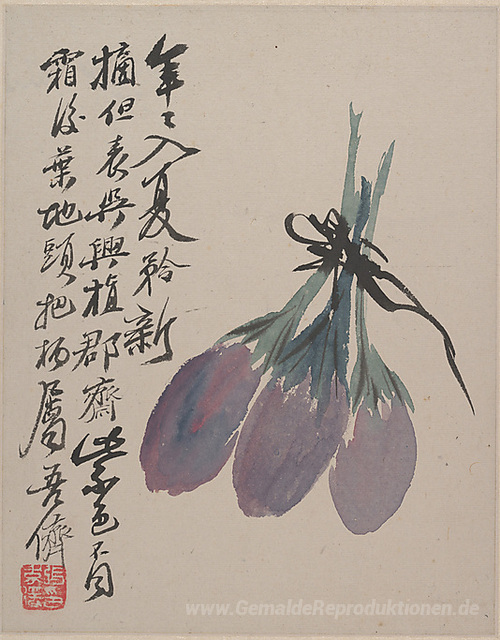 年〻入夏矜新
摘但表與興植郡齋紫色不因
霜後葉地頭把柄屬吾儕
www.GemaldeReproduktionen.de